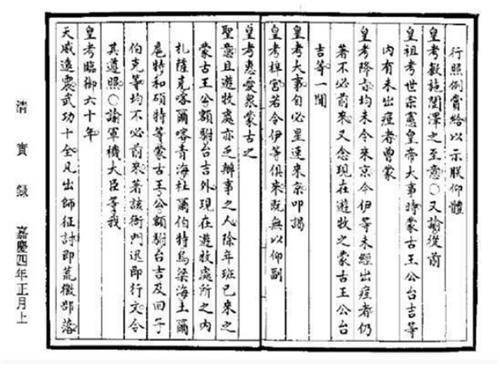 行照例賞給以示朕仰體
皇考敷施闓澤之至意○又諭從前
皇祖考世宗憲皇帝大事時蒙古王公台吉等
內有未出痘者曾蒙
皇考降旨均未令來京今伊等未經出痘者仍
著不必前來又念現在遊牧之蒙古王公台
吉等一聞
皇考大事自必星速來京叩謁
皇考梓宮若令伊等俱來既無以仰副
皇考惠愛衆蒙古之
聖意且遊牧處亦乏辦事之人除年班已來之
蒙古王公額駙台吉外現在遊牧處所之內
札薩克喀爾喀青海杜爾伯特烏梁海土爾
扈特和碩特等蒙古王公額駙台吉及回子
伯克等均不必前來著該衙門迅即行文令
其遵照○諭軍機大臣等我
皇考臨御六十年
天威遠震武功十全凡出師征討即荒徼部落
清實錄 嘉慶四年正月上